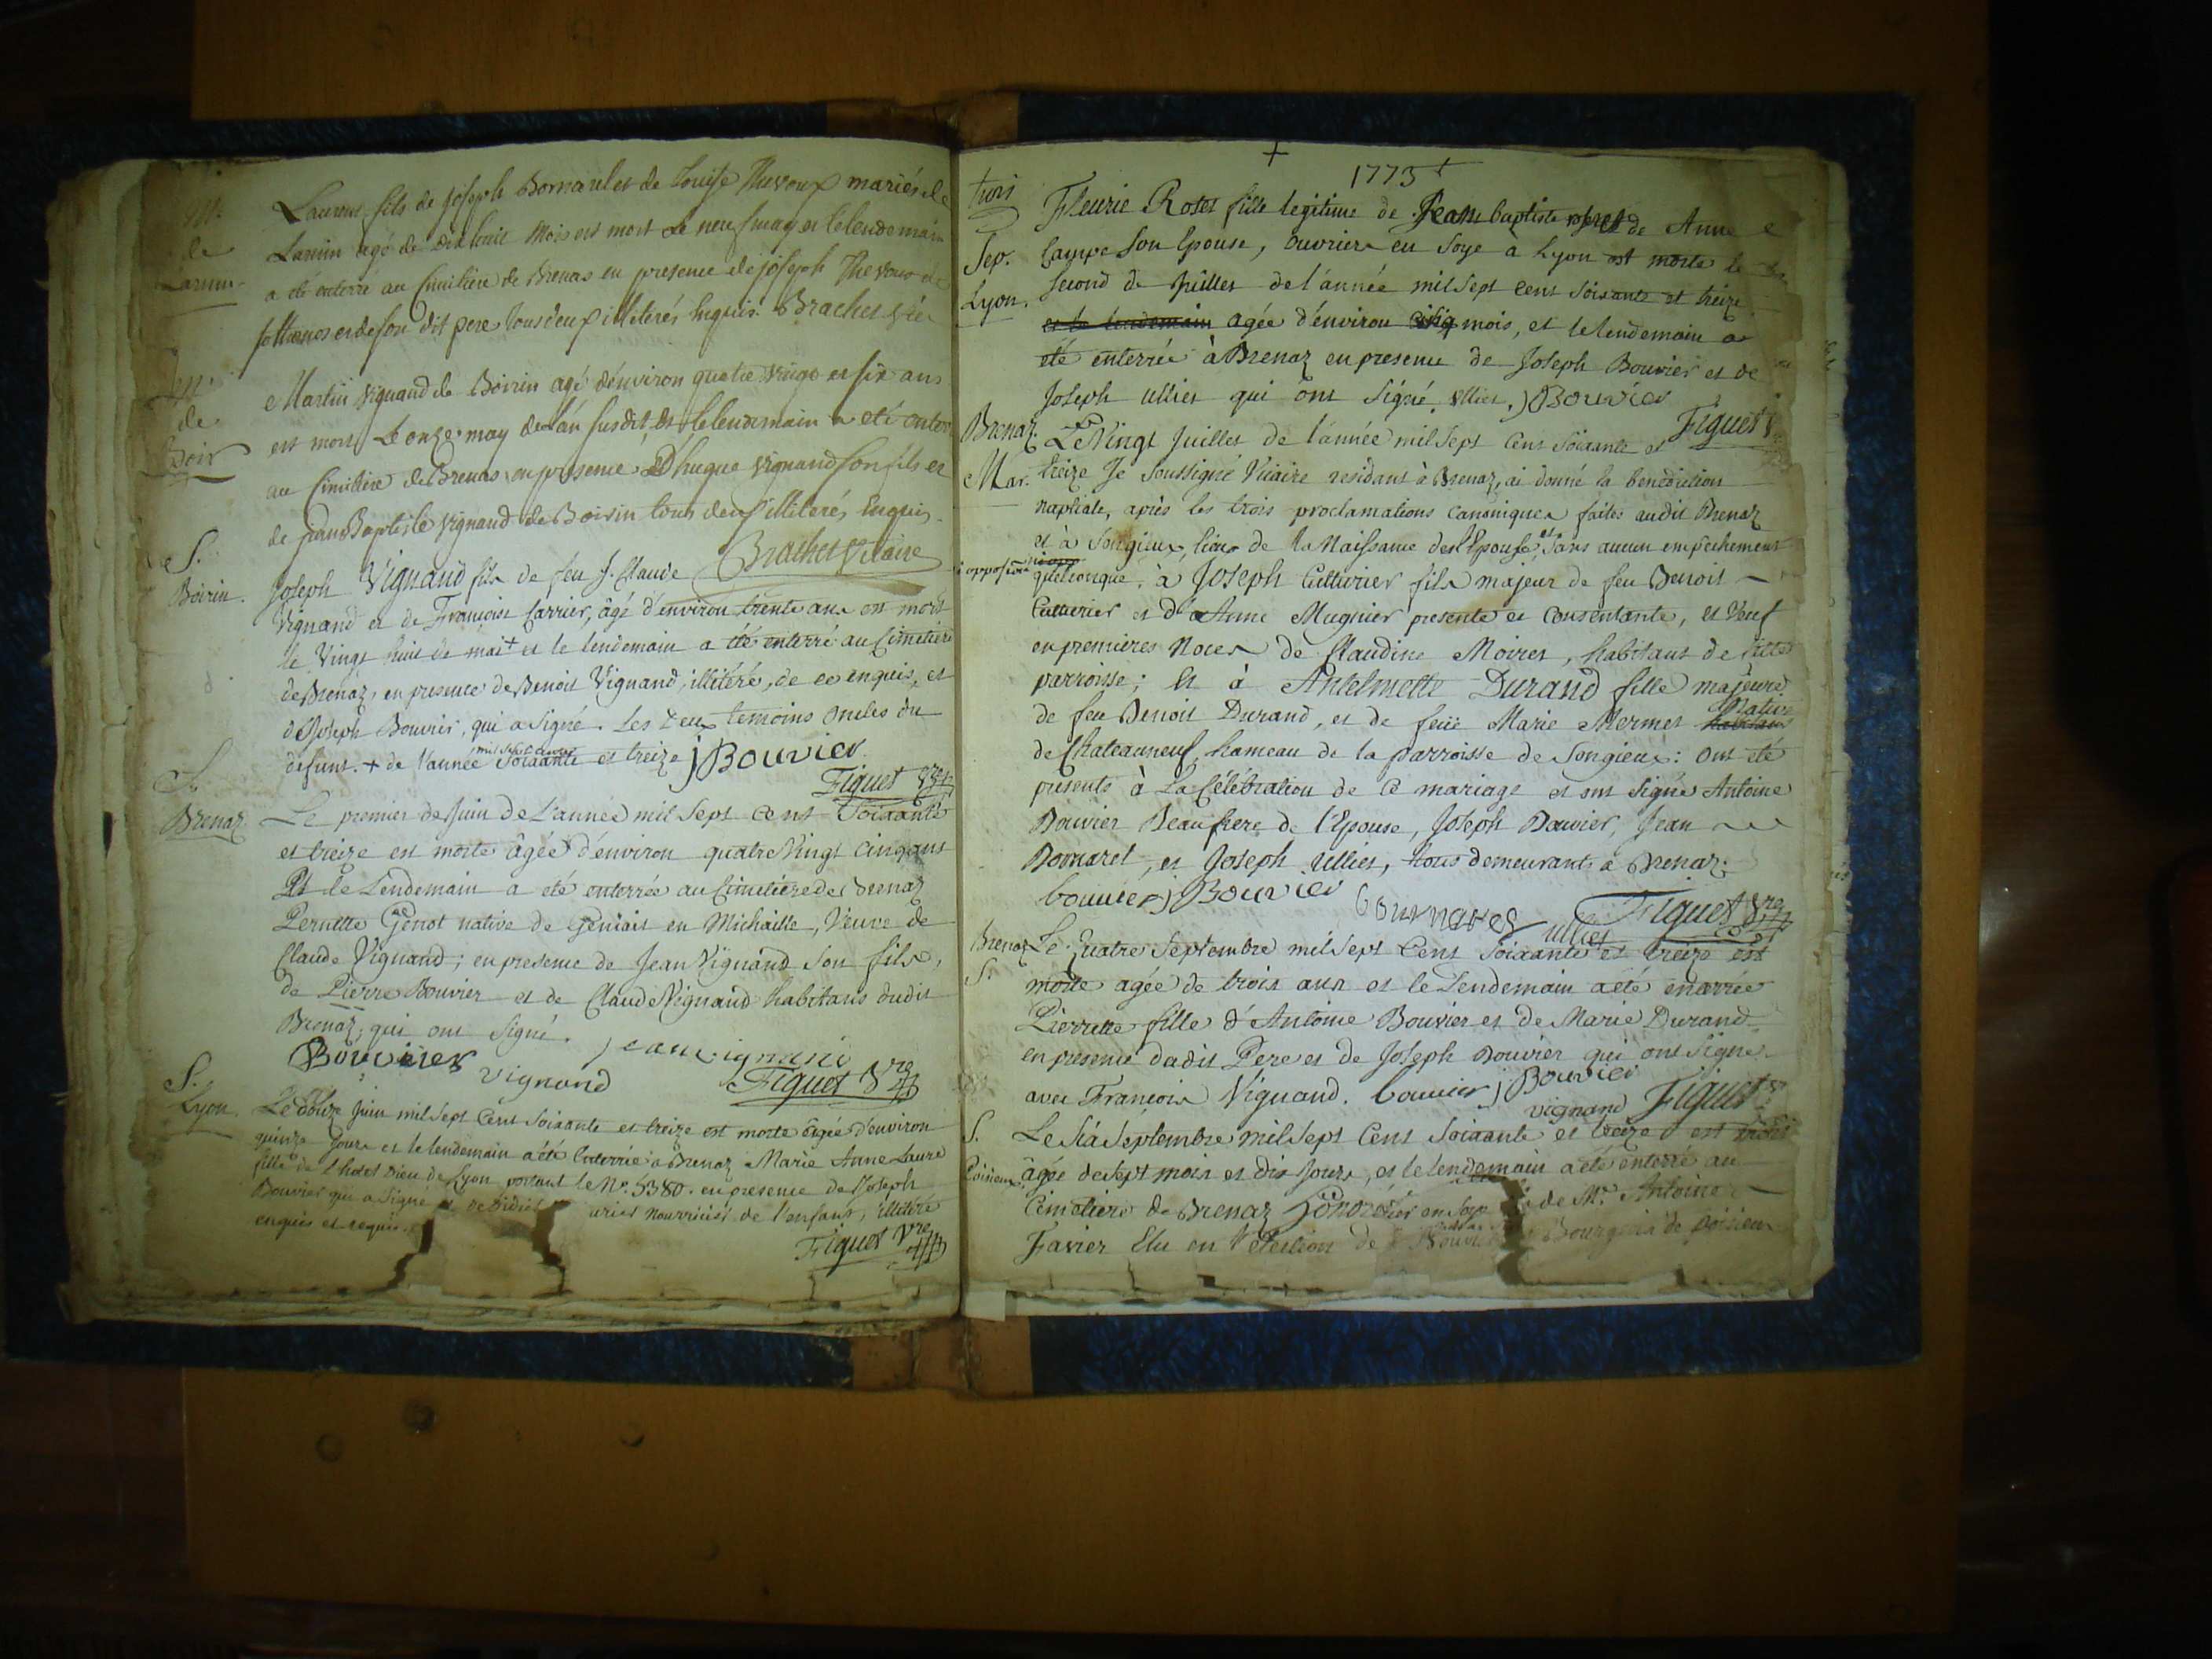 M.
de
Lamin
Laurent fils de Joseph Bornarel et de Louise Thevoux mariés de
Lamin agé de dix huit mois est mort Le neuf may et le lendemain
a été enterré au Cimitiere de Brenas en presence de joseph Thevoux de
et de son dit pere tous deux illiterés Enquis. Brachet Vic
M.
de
Boir
Martin Vignand de Boirin agé d'environ quatre Vingt et six ans
est mort Le onze may de l'an susdit, et le lendemain a eté enter
au Cimitiere de Brenas en presence D'hugue Vignand son fils et
de Jean Baptiste Vignand de Boirin tous deux illiterés Enquis.
Brachet Vicaire
S.
Boirin.
Joseph Vignand fils de feu J. Claude
Vignand et de Françoise Carrier, âgé d'environ trente ans est mort
le Vingt huit de mai + et le lendemain a été enterré au Cimetiere
de Brenaz, en presence de Benoit Vignand, illitéré, de ce enquis, et
de Joseph Bouvier, qui a signé. Les deux temoins oncles du
defunt. + de l'année mil sept cent Soixante et treize j Bouvier
Figuet Vre
S.
Brenaz
Le premier de Juin de L'année mil Sept cent Soixante
et treize est morte âgée d'environ quatre Vingt cinq ans
Et le Lendemain a eté enterrée au Cimetiere de Brenaz
Pernette Genot native de Geniais en Michaille, Veuve de
Claude Vignand; en presence de Jean Vignand Son fils,
de Pierre Bouvier et de Claude Vignand habitans dudit
Brenaz, qui ont Signé.
Bouvier vignand jean vignand
Figuet Vre
S.
Lyon.
Le douze Juin mil Sept Cent Soixante et treize est morte âgée d'environ
quinze Jours et le lendemain a été Enterrée à Brenaz Marie Anne Laure
fille de L'hotel Dieu de Lyon portant le N°. 5380. en presence de Joseph
Bouvier qui a Signé et de Didier urier nourricier de l'enfant, illitéré
enquis et requis.
Figuet Vre
+
1773 +
trois
Sep.
Lyon.
Fleurie Rotet fille legitime de Jean baptiste rotet et de Anne
Campe Son Epouse, ouvriers en Soye à Lyon est morte le
Second de Juillet de l'année mil Sept cent Soixante et treize
et le lendemain agée d'environ cinq mois, et le lendemain a
eté enterrée à Brenaz en presence de Joseph Bouvier et de
Joseph Ullier qui ont Signé. Ullier. j Bouvier
Figuet V
Brenaz.
Mar.
Le Vingt Juillet de l'année mil Sept Cent Soixante et
treize Je Soussigné Vicaire residant à Brenaz, ai donné la benediction
nuptiale, après les trois proclamations canoniques faites audit Brenaz
et à Songieux, lieu de la Naissance de l'Epouse, et Sans aucun empêchement
ni opposition quelconque, à Joseph Cutturier fils majeur de feu Benoit
Cutturier et d'Anne Mugnier presente et Consentante, et Veuf
en premieres Noces de Claudine Moiret, habitant de
parroisse; Et à Antelmette Durand fille majeure
de feu Benoit Durand, et de feüe Marie Mermet habitans Native
de Chateauneuf, hameau de la parroisse de Songieux: ont été
présents à La Célébration de ce mariage et ont Signé Antoine
Bouvier Beaufrere de l'Epouse, Joseph Bouvier, Jean
Bornarel, et Joseph Ullier, tous demeurant à Brenaz.
bouvier j Bouvier bournarel ullier Figuet Vre
Brenaz
S.
Le quatre Septembre mil Sept Cent Soixante et treize est
morte agée de trois ans et le Lendemain a eté enterrée
Pierrette fille d'Antoine Bouvier et de Marie Durand
en presence dudit Pere et de Joseph Bouvier qui ont Signé
avec François Vignand. bouvier j Bouvier
vignand Figuet
S.
Poisieux
Le Six Septembre mil Sept Cent Soixante et treize est
âgée de sept mois et dix Jours, et le lendemain a été enterré au
Cimetiere de Brenaz en de Mr. Antoine
Favier Elu en l'Election de Bourgeois de Poisieux